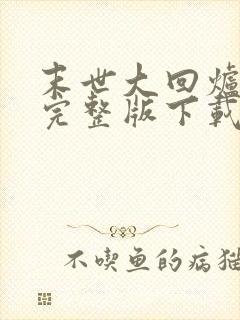 末世大回爐
完整版下載
不喫鱼的病猫